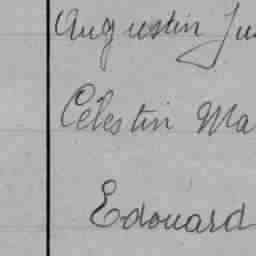 Augustin Ju
Célestin Ma
Edouard